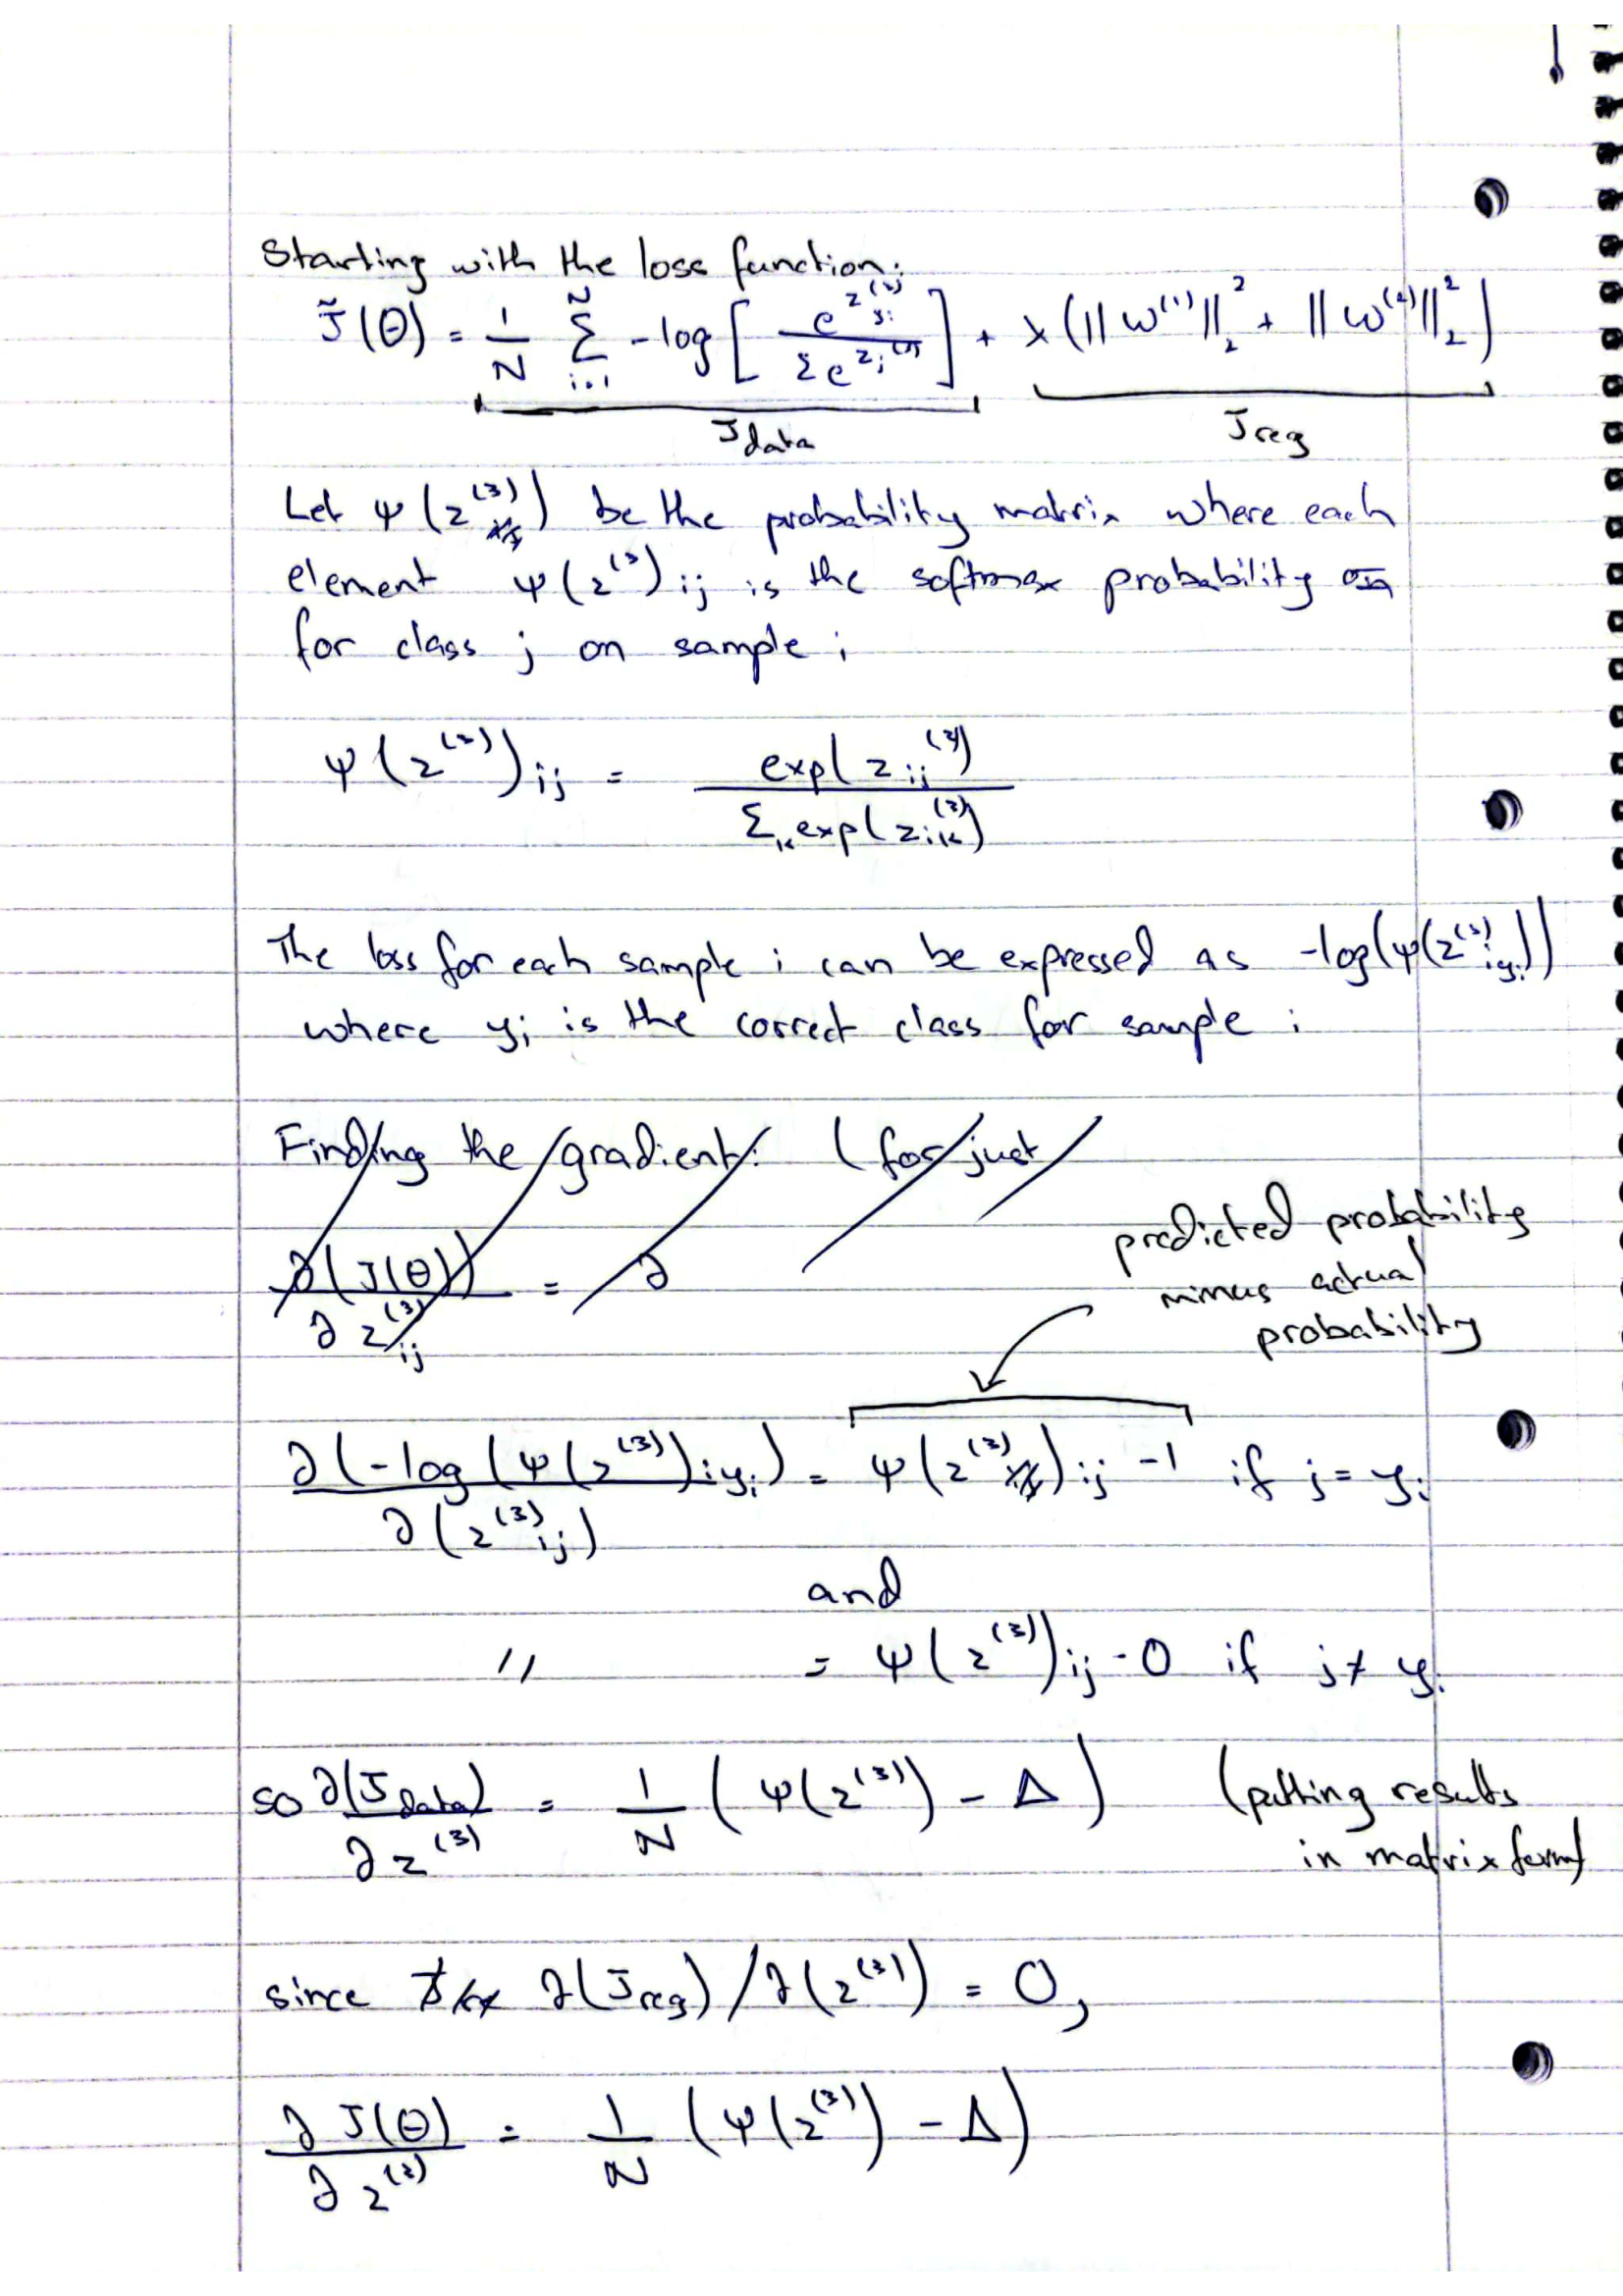 Starting with the loss function:
J̃(θ) = 1/N Σ_{i=1}^{N} -log[ e^{z^{(3)}_{y_i}} / Σ e^{z_j^{(3)}} ] + λ(||W^{(1)}||_2^2 + ||W^{(2)}||_2^2)
J_data J_reg
Let ψ(z^{(3)}) be the probability matrix where each
element ψ(z^{(3)})_{ij} is the softmax probability
for class j on sample i
ψ(z^{(3)})_{ij} = exp(z_{ij}^{(3)}) / Σ_k exp(z_{ik}^{(3)})
The loss for each sample i can be expressed as -log(ψ(z^{(3)}_{iy_i}))
where y_i is the correct class for sample i
Finding the gradient: (for just
∂(J(θ)) / ∂z^{(3)}_{ij} = ∂
predicted probability
minus actual
probability
∂(-log(ψ(z^{(3)})_{iy_i}) / ∂(z^{(3)}_{ij}) = ψ(z^{(3)})_{ij} - 1 if j = y_i
and
〃 = ψ(z^{(3)})_{ij} - 0 if j ≠ y_i
so ∂(J_data) / ∂z^{(3)} = 1/N (ψ(z^{(3)}) - Δ) (putting results
in matrix form)
since ∂(J_reg)/∂(z^{(3)}) = 0,
∂J(θ) / ∂z^{(3)} = 1/N (ψ(z^{(3)}) - Δ)